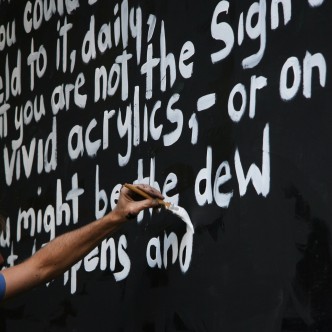 you could
ld to it, daily,
you are not the Sign
vivid acrylics,– or on
might be the dew
pens and